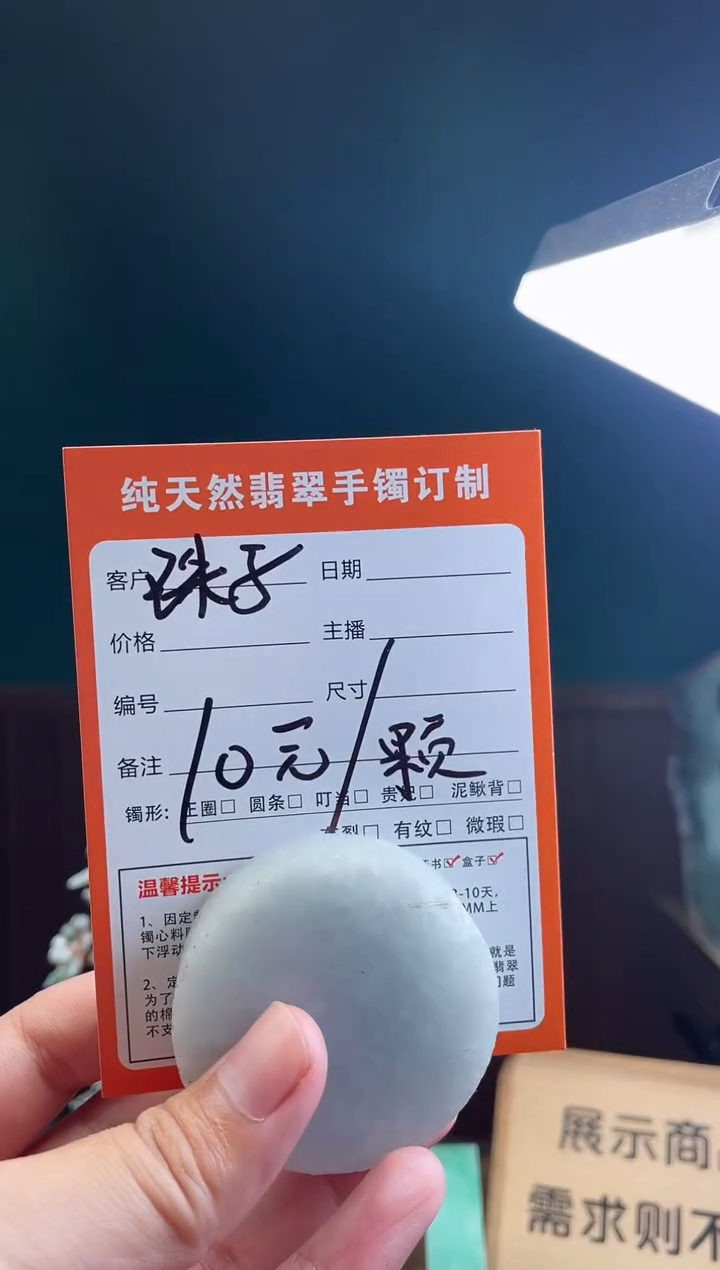 纯天然翡翠手镯订制
客户 珠子 日期
价格 主播
编号 尺寸
备注 10元/颗
镯形: 正圈□ 圆条□ 叮当□ 贵妃□ 泥鳅背□
裂□ 有纹□ 微瑕□
温馨提示 书☑ 盒子☑
1、因定 -10天,
镯心料 MM上
下浮动 就是
翡翠
2、定 问题
为了
的棉
不支
展示商
需求则不